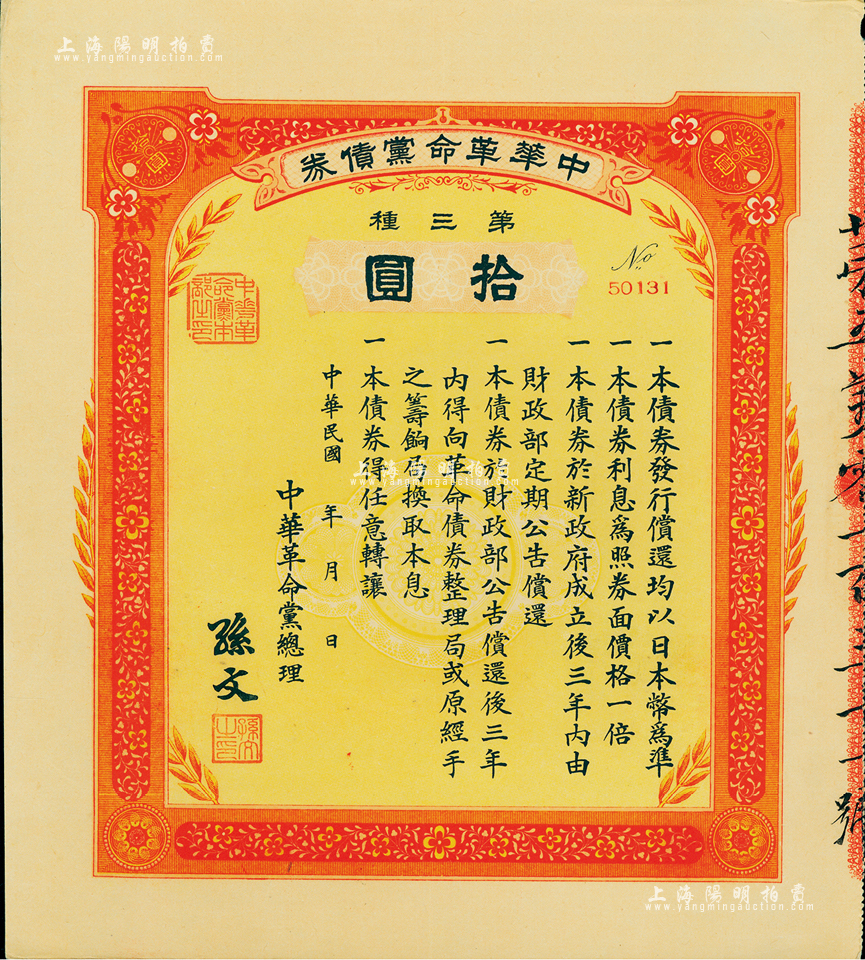 上海陽明拍賣
www.yangmingauction.com
中華革命黨債券
第三種
拾圓
No
50131
一本債券發行償還均以日本幣爲準
一本債券利息爲照券面價格一倍
一本債券於新政府成立後三年內由
財政部定期公告償還
一本債券於財政部公告償還後三年
內得向革命債券整理局或原經手
之籌餉局換取本息
一本債券得任意轉讓
中華民國 年 月 日
中華革命黨總理
孫文
中華革命黨本部之印
孫文之印
上海陽明拍賣
www.yangmingauction.com
上海陽明拍賣
www.yangmingauction.com